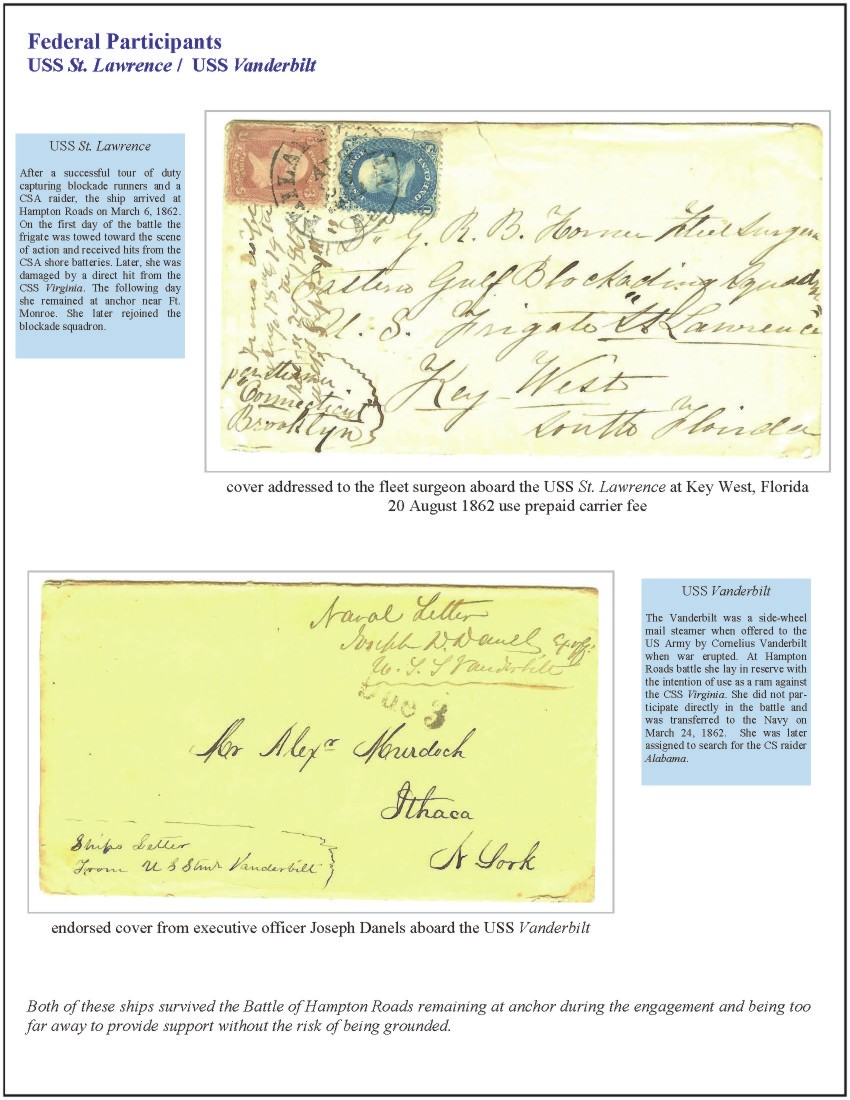 Federal Participants
USS St. Lawrence / USS Vanderbilt
USS St. Lawrence
After a successful tour of duty
capturing blockade runners and a
CSA raider, the ship arrived at
Hampton Roads on March 6, 1862.
On the first day of the battle the
frigate was towed toward the scene
of action and received hits from the
CSA shore batteries. Later, she was
damaged by a direct hit from the
CSS Virginia. The following day
she remained at anchor near Ft.
Monroe. She later rejoined the
blockade squadron.
G. R. B. Horner Fleet Surgeon
Eastern Gulf Blockading Squadron
U. S. Frigate "St Lawrence"
Key West
South Florida
per steamer
"Connecticut"
Brooklyn
cover addressed to the fleet surgeon aboard the USS St. Lawrence at Key West, Florida
20 August 1862 use prepaid carrier fee
Naval Letter
Joseph D. Danels
U. S. S Vanderbilt
DUE 3
Mr Alexr Murdoch
Ithaca
N York
Ships Letter
From U S Stmr Vanderbilt
endorsed cover from executive officer Joseph Danels aboard the USS Vanderbilt
USS Vanderbilt
The Vanderbilt was a side-wheel
mail steamer when offered to the
US Army by Cornelius Vanderbilt
when war erupted. At Hampton
Roads battle she lay in reserve with
the intention of use as a ram against
the CSS Virginia. She did not par-
ticipate directly in the battle and
was transferred to the Navy on
March 24, 1862. She was later
assigned to search for the CS raider
Alabama.
Both of these ships survived the Battle of Hampton Roads remaining at anchor during the engagement and being too
far away to provide support without the risk of being grounded.